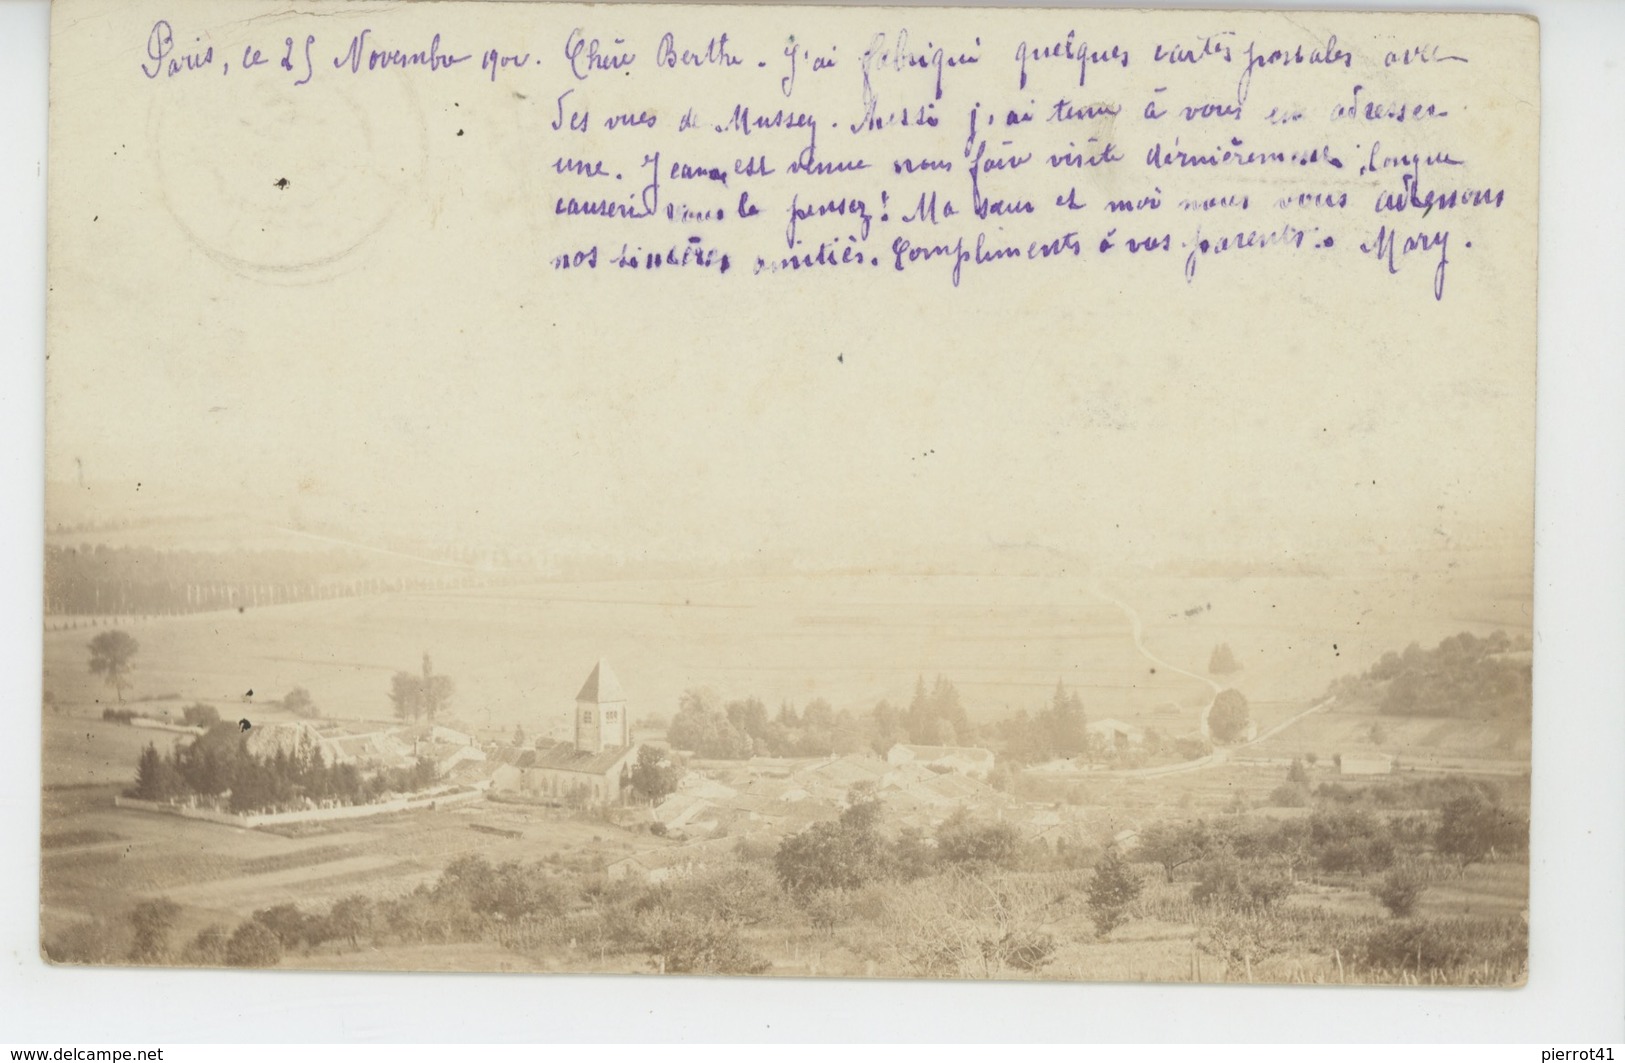 Paris, ce 25 Novembre 1901. Chère Berthe. J'ai fabriqué quelques cartes postales avec
des vues de Mussey. Aussi j'ai tenu à vous en adresser
une. Jeanne est venue nous faire visite dernièrement, longue
causerie vous le pensez! Ma sœur et moi nous vous adressons
nos sincères amitiés. Compliments à vos parents. Mary.
www.delcampe.net
pierrot41